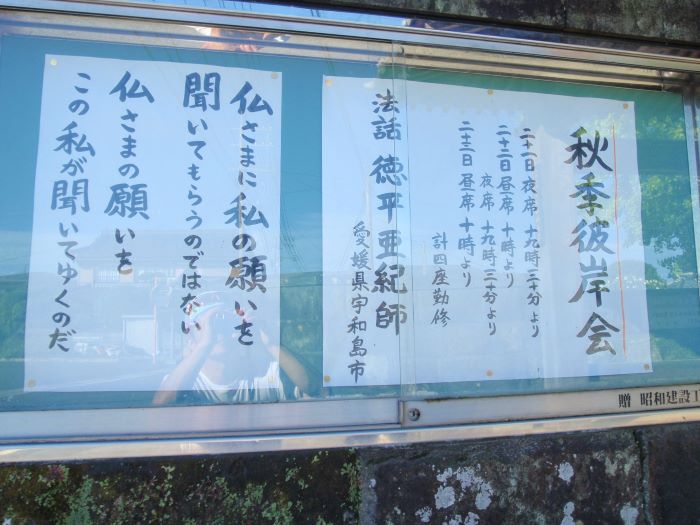 秋季彼岸会
二十一日 夜席 十九時三十分より
二十二日 昼席 十時より
夜席 十九時三十分より
二十三日 昼席 十時より
計四座勤修
法話 徳平亜紀師
愛媛県宇和島市
仏さまに私の願いを
聞いてもらうのではない
仏さまの願いを
この私が聞いてゆくのだ
贈 昭和建設